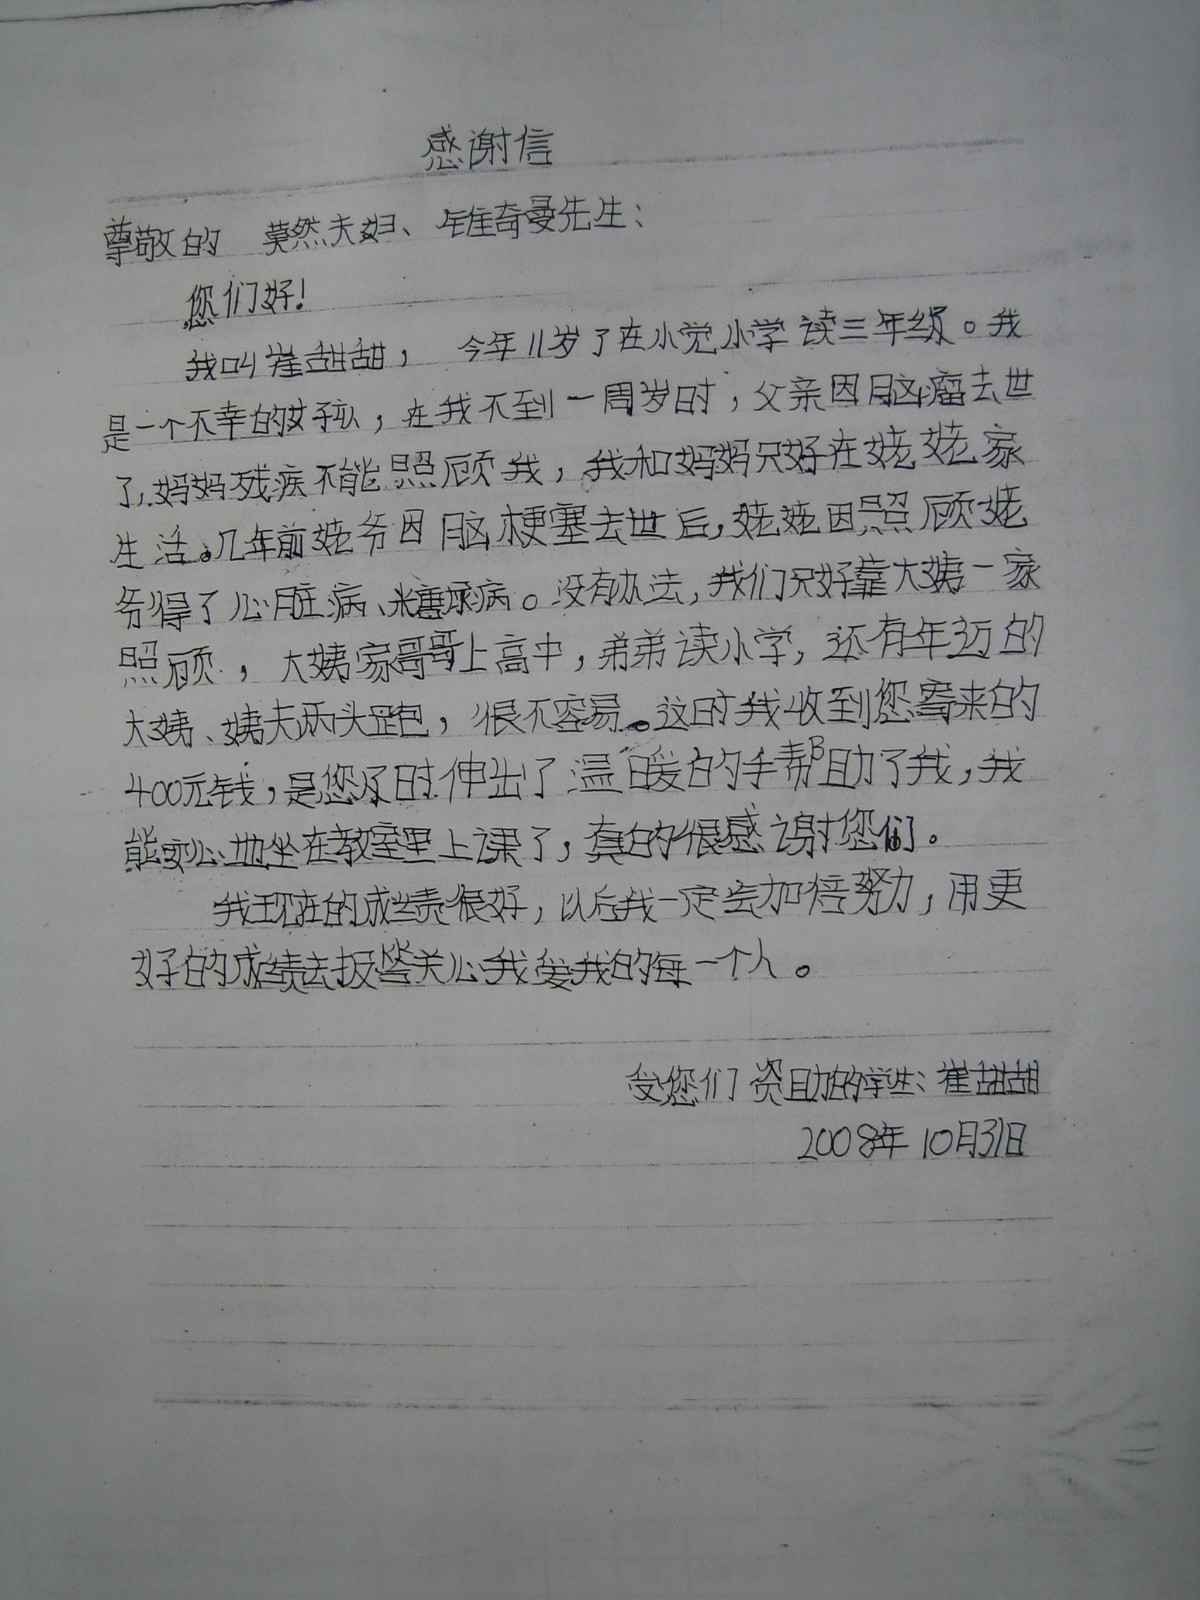 感谢信
尊敬的 莫然夫妇、维奇曼先生：
您们好！
我叫崔甜甜， 今年11岁了在小觉小学读三年级。我
是一个不幸的女孩，在我不到一周岁时，父亲因脑瘤去世
了，妈妈残疾不能照顾我，我和妈妈只好在姥姥家
生活。几年前姥爷因脑梗塞去世后，姥姥因照顾姥
爷得了心脏病、糖尿病。没有办法，我们只好靠大姨一家
照顾，大姨家哥哥上高中，弟弟读小学，还有年迈的
大姨、姨夫两头跑，很不容易。这时我收到您寄来的
400元钱，是您及时伸出了温暖的手帮助了我，我
能安心地坐在教室里上课了，真的很感谢您们。
我现在的成绩很好，以后我一定会加倍努力，用更
好的成绩去报答关心我爱我的每一个人。
受您们资助的学生：崔甜甜
2008年10月31日